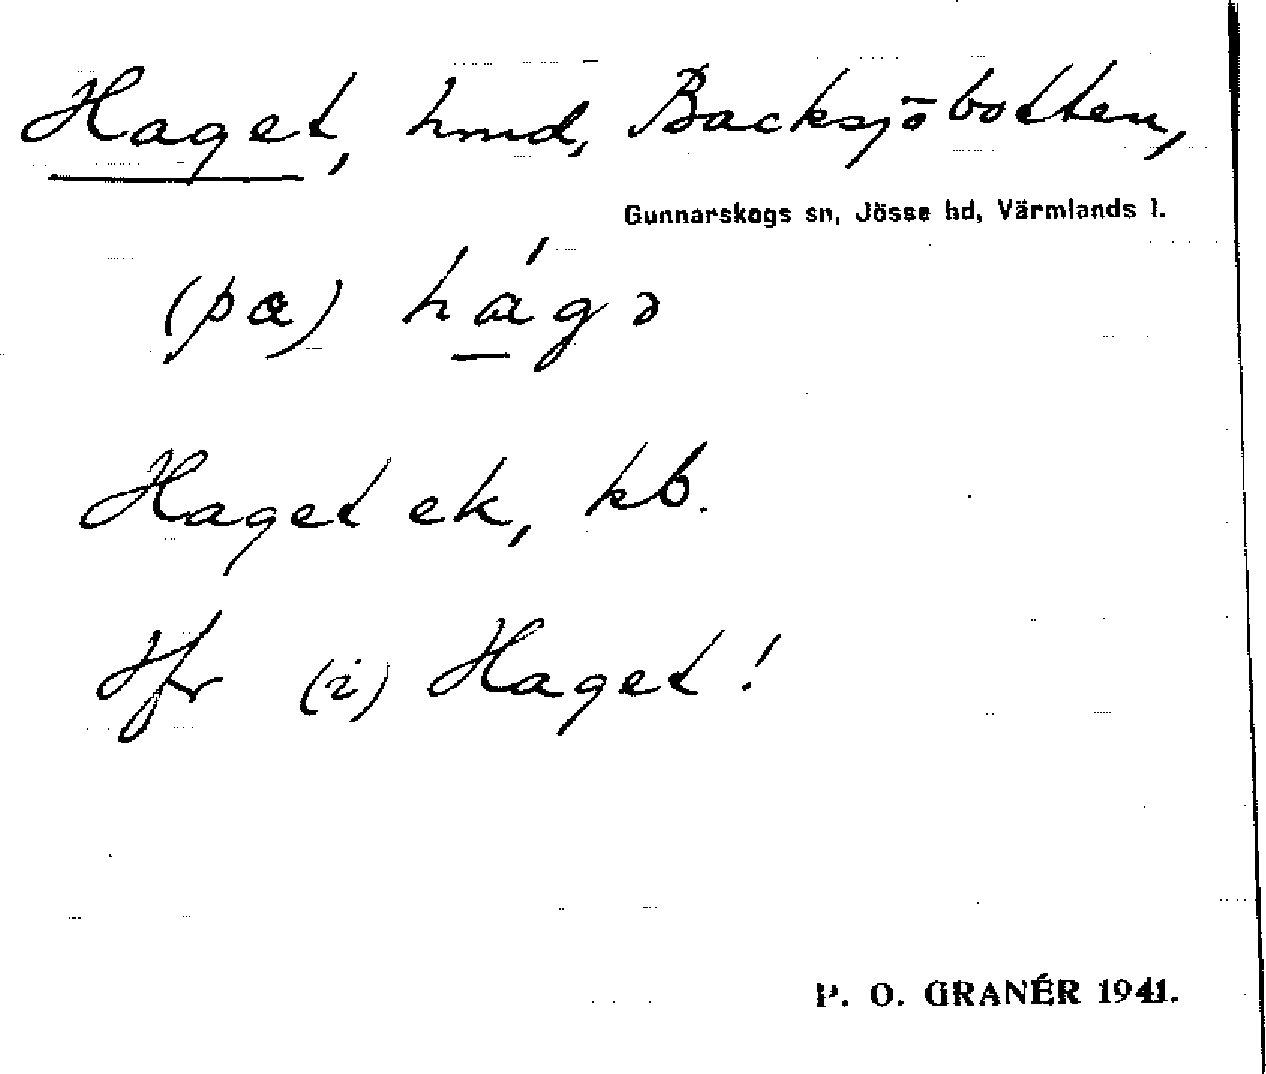 Haget, hmd, Backsjöbotten,
Gunnarskogs sn, Jösse hd, Värmlands l.
(pɑ) hɑ́gə
Haget ek, kb.
Hfr (i) Haget!
P. O. GRANÉR 1941.